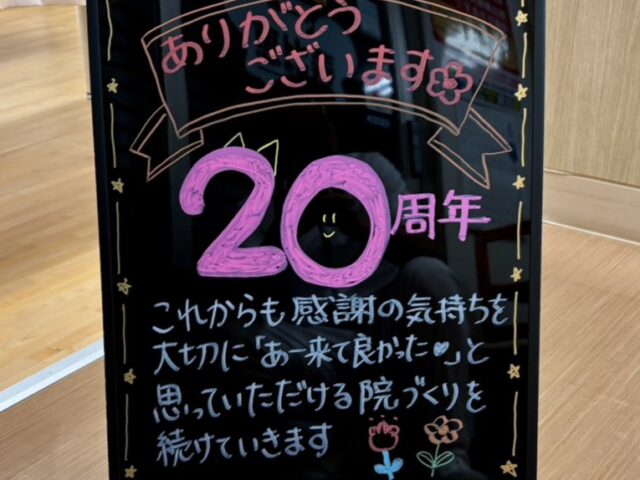 ありがとう
ございます
20周年
これからも感謝の気持ちを
大切に「あー来て良かった♥」と
思っていただける院づくりを
続けていきます